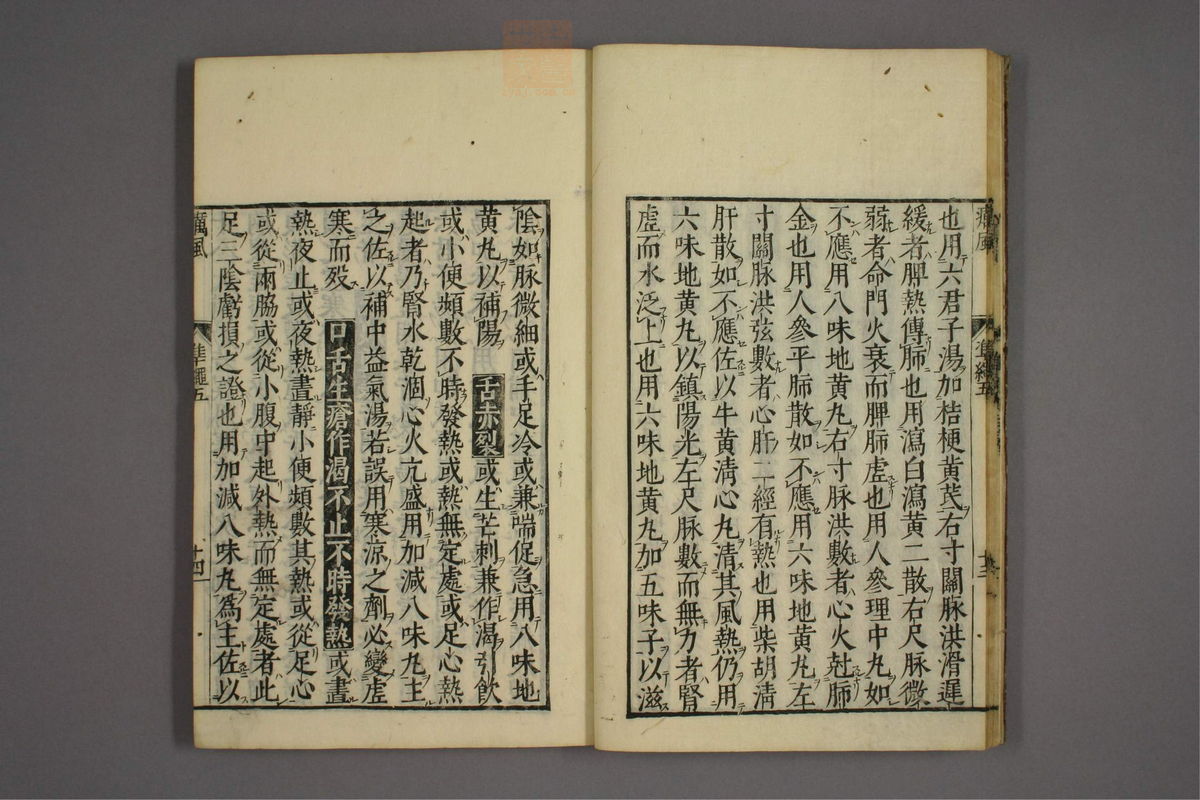 也用六君子湯加桔梗黃芪右寸關脉洪滑遲
緩者脾熱傳肺也用瀉白瀉黃二散右尺脉微
弱者命門火衰而脾肺虛也用人參理中丸如
不應用八味地黃丸右寸脉洪數者心火尅肺
金也用人參平肺散如不應用六味地黃丸左
寸關脉洪弦數者心肝二經有熱也用柴胡淸
肝散如不應佐以牛黃淸心丸清其風熱仍用
六味地黃丸以鎮陽光左尺脉數而無力者腎
虛而水泛上也用六味地黃丸加五味子以滋
癘風
準繩五
十三
陰如脉微細或手足冷或兼喘促急用八味地
黃丸以補陽舌赤裂或生芒刺兼作渴引飲
或小便頻數不時發熱或熱無定處或足心熱
起者乃腎水乾涸心火亢盛用加減八味丸主
之佐以補中益氣湯若誤用寒涼之劑必變虛
寒而殁口舌生瘡作渴不止不時發熱或晝
熱夜止或夜熱晝靜小便頻數其熱或從足心
或從兩脇或從小腹中起外熱而無定處者此
足三陰虧損之證也用加減八味丸爲主佐以
癘風
準繩五
十四